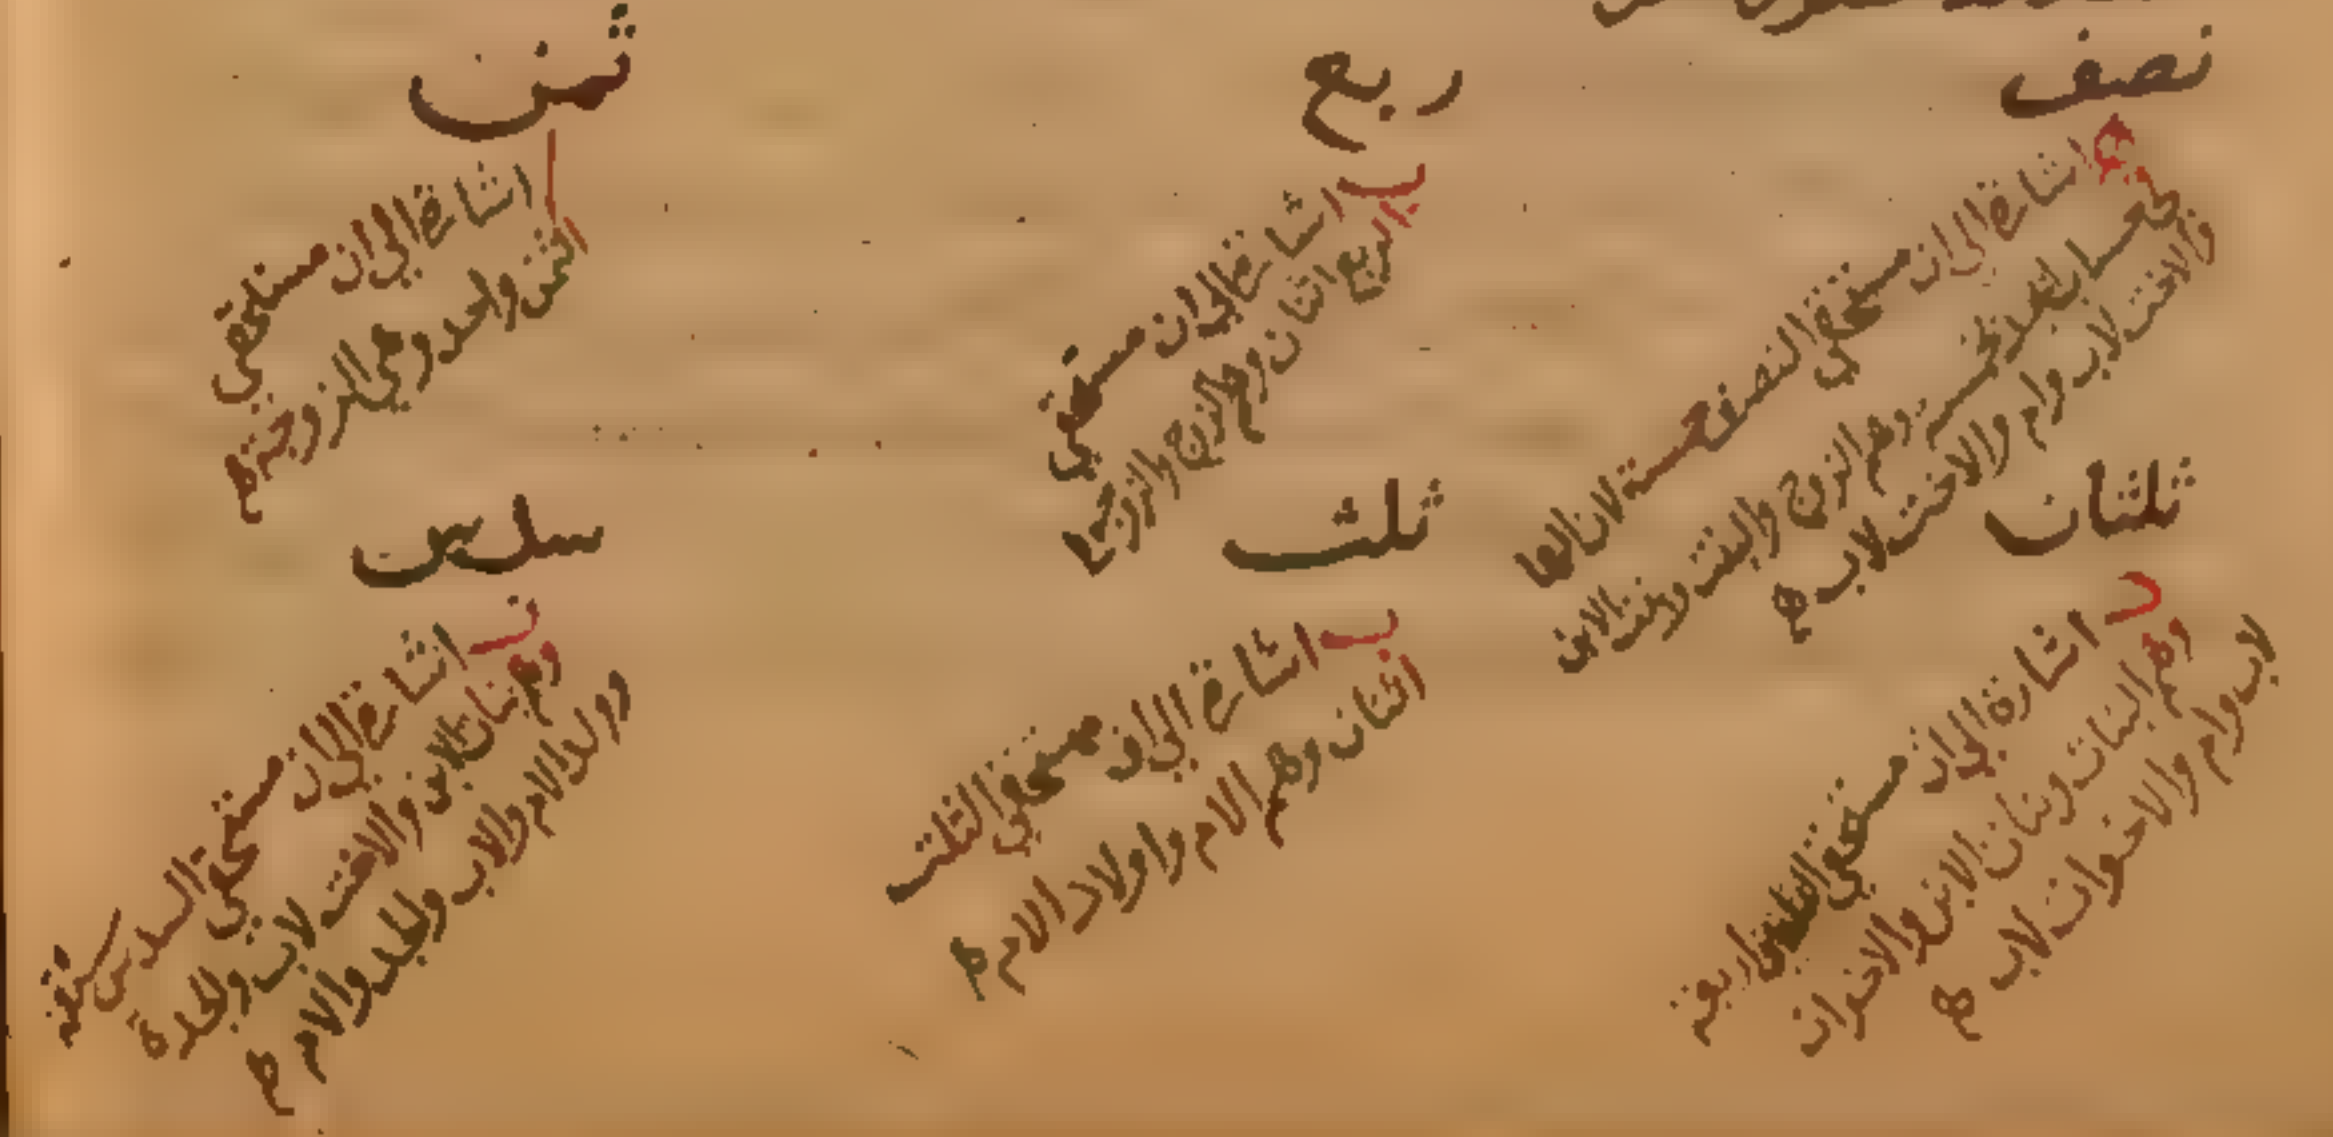 نصف
ه اشارة الى ان مستحقي النصف خمسة لان الها
بحساب الجمل خمسة وهم الزوج والبنت وبنت الابن
والاخت لاب وام والاخت لاب
ربع
ب اشارة الى ان مستحقي
الربع اثنان وهم الزوج والزوجة
ثمن
ا اشارة الى ان مستحقي
الثمن واحد وهي الزوجة
ثلثان
د اشارة الى ان مستحقي الثلثين اربعة
وهم البنات وبنات الابن والاخوات
لاب وام والاخوات لاب
ثلث
ب اشارة الى ان مستحقي الثلث
اثنان وهم الام واولاد الام
سدس
ز اشارة الى ان مستحقي السدس سبعة
وهم بنات الابن والاخت لاب والجدة
وولد الام والاب والجد والام